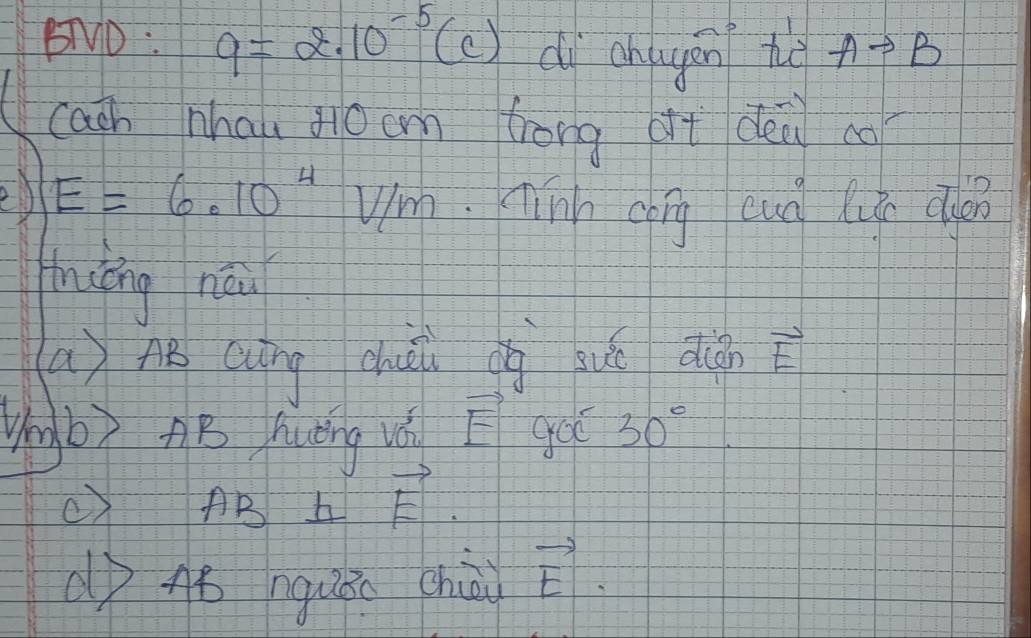 BTVD: q = 2.10⁻⁵ (C) di chuyển từ A → B
cách nhau 10 cm trong đtr đều có
e) E = 6.10⁴ V/m. Tính công của lực điện
trường nếu
a) AB cùng chiều đg sức điện E⃗
V/m b) AB hướng với E⃗ góc 30°.
c) AB ⊥ E⃗.
d) AB ngược chiều E⃗.